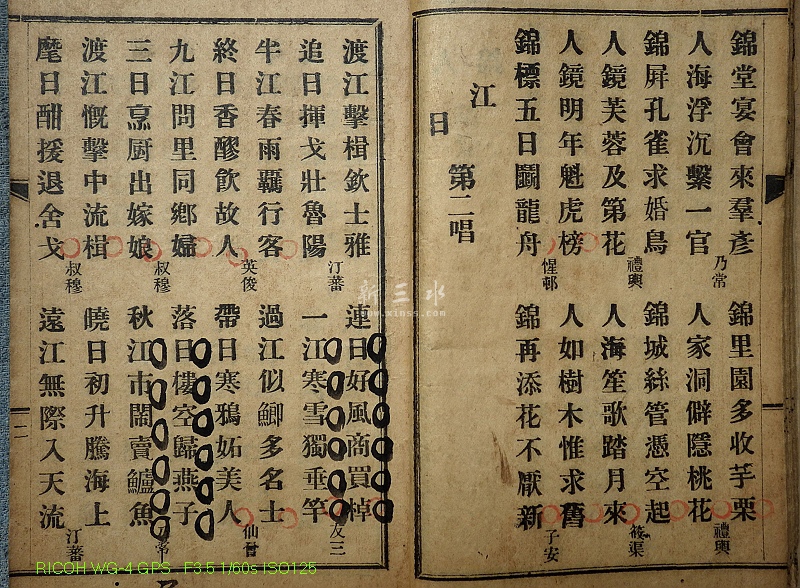 錦堂宴會來羣彥
乃常
錦里園多收芋栗
禮輿
人海浮沉繫一官
人家洞僻隱桃花
錦屏孔雀求婚鳥
禮輿
錦城絲管憑空起
筱渠
人鏡芙蓉及第花
人海笙歌踏月來
人鏡明年魁虎榜
人如樹木惟求舊
子安
錦標五日鬭龍舟
惺邨
錦再添花不厭新
江
日
第二唱
渡江擊楫欽士雅
汀蕃
連日好風商買棹
友三
追日揮戈壯魯陽
一江寒雪獨垂竿
半江春雨羈行客
過江似鯽多名士
仙台
終日香醪飲故人
英俊
帶日寒鴉妬美人
九江問里同鄉婦
落日樓空歸燕子
常
三日烹厨出嫁娘
叔穆
秋江市閙賣鱸魚
渡江慨擊中流楫
叔穆
曉日初升騰海上
汀蕃
麾日酣援退舍戈
遠江無際入天流
二
新三水
www.xinss.com
RICOH WG-4 GPS F3.5 1/60s ISO125